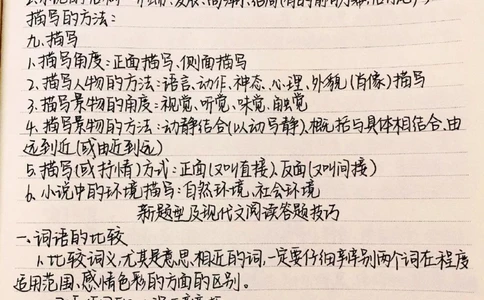 描写的方法:
九、描写
1、描写角度:正面描写、侧面描写
2、描写人物的方法:语言、动作、神态、心理、外貌(肖像)描写
3、描写景物的角度:视觉、听觉、味觉、触觉
4、描写景物的方法:动静结合(以动写静)、概括与具体相结合、由
远到近(或由近到远)
5、描写(或抒情)方式:正面(又叫直接)、反面(又叫间接)
6、小说中的环境描写:自然环境、社会环境
新题型及现代文阅读答题技巧
一、词语的比较
1、比较词义,尤其是意思相近的词,一定要仔细辨别两个词在程度
适用范围、感情色彩的方面的区别。